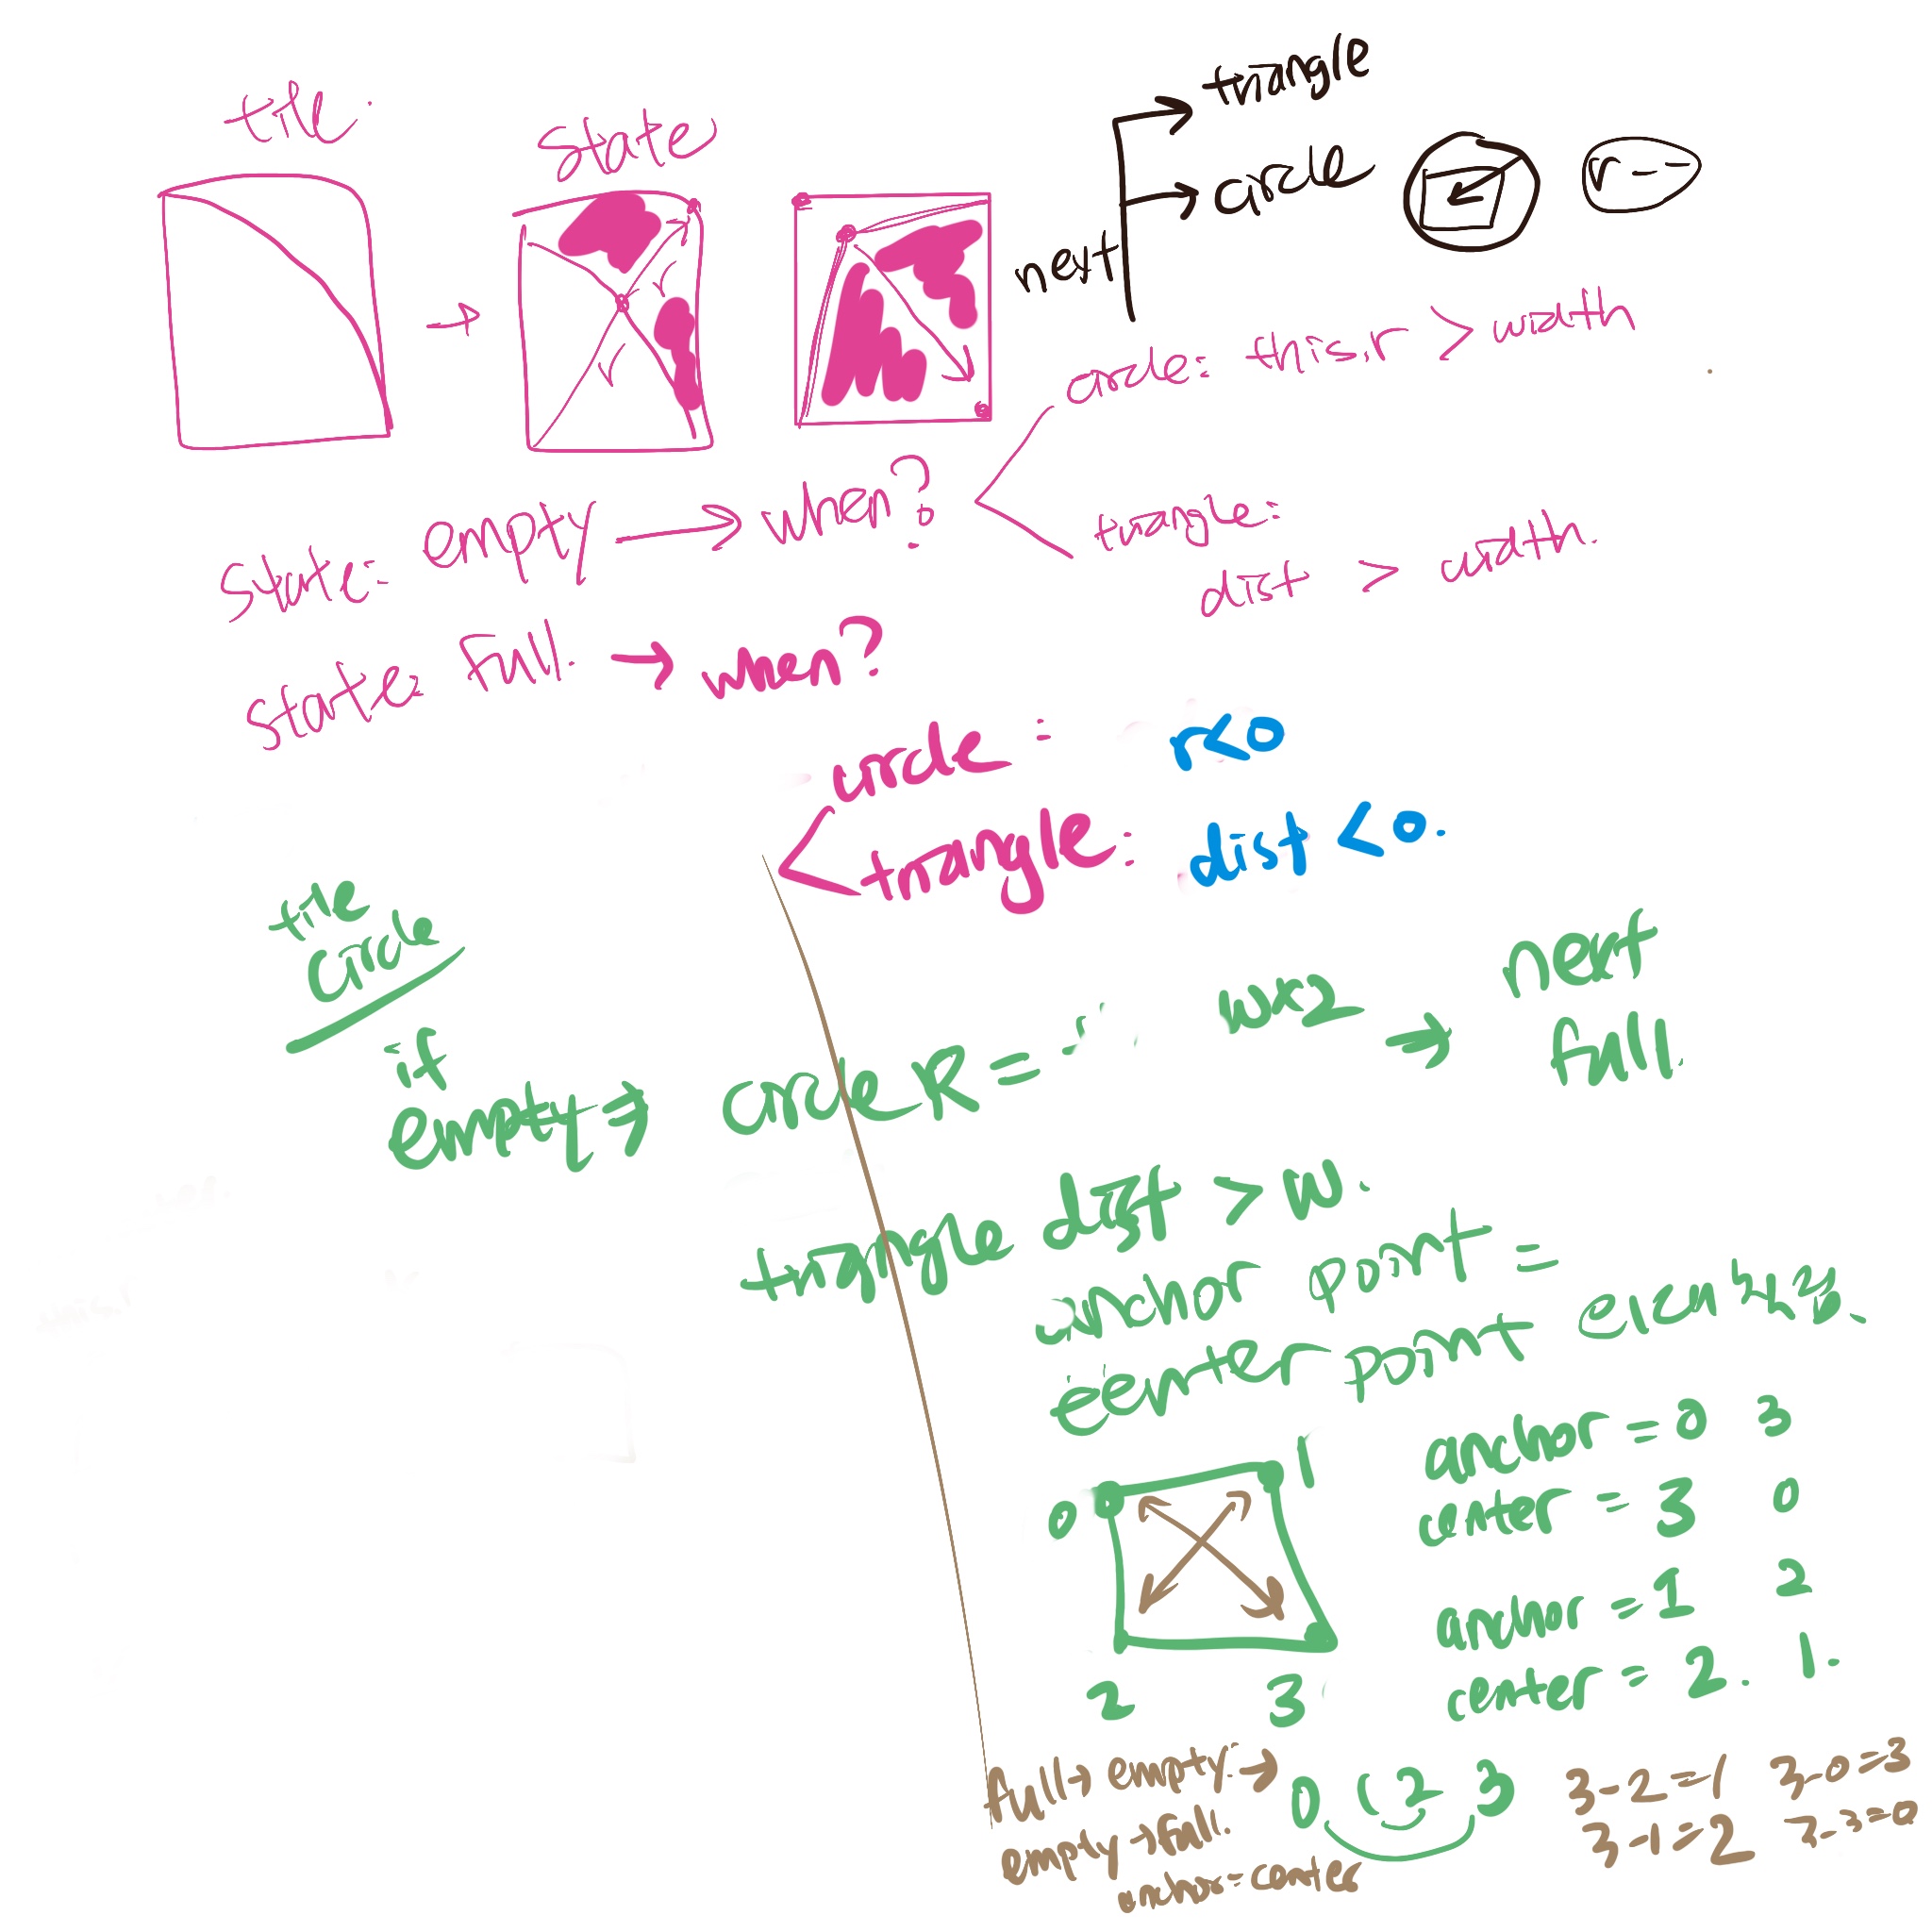 tile.
state
next
triangle
circle
r--
circle: this.r > width
state: empty → when?
triangle:
dist > width.
state: full. → when?
circle: r<0
triangle: dist <0.
tile
circle
if
empty → circle R = w×2 → next
full.
triangle dist > w.
anchor point =
center point
0 1
2 3
anchor = 0 3
center = 3 0
anchor = 1 2
center = 2. 1.
full → empty: →
empty → full.
anchor = center
0 1 2 3
3-2=1 3-0=3
3-1=2 3-3=0